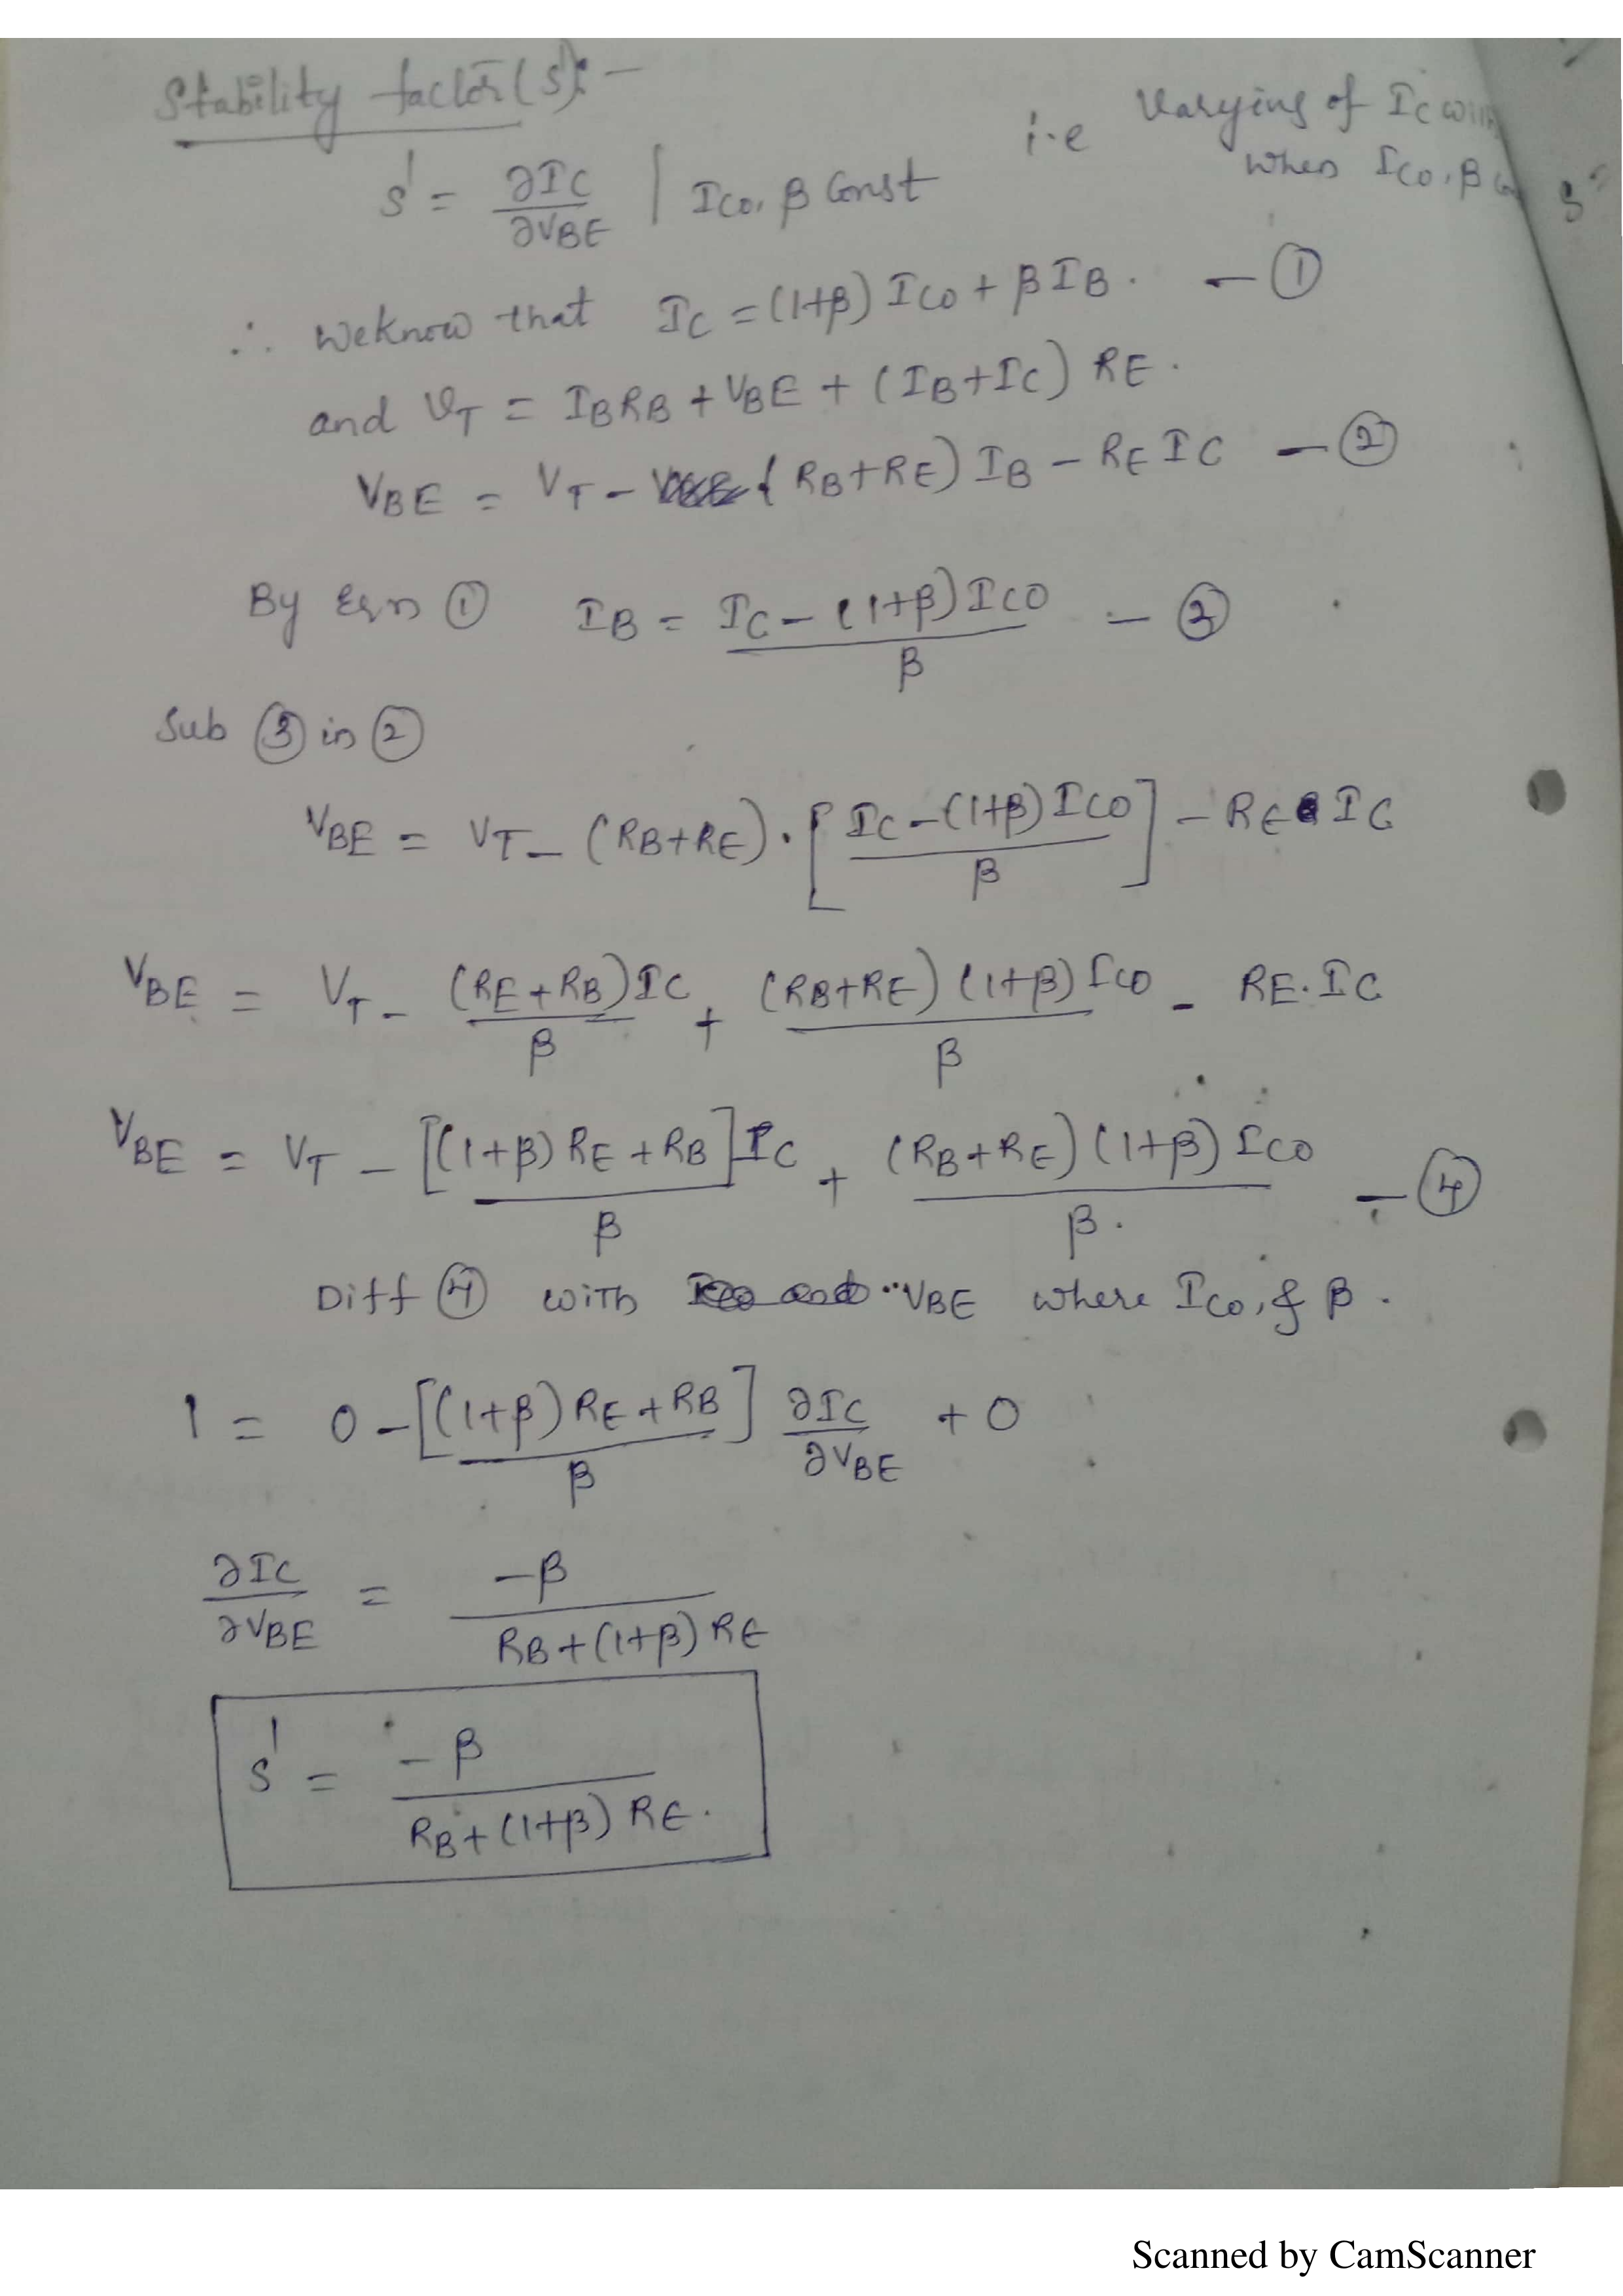 Stability factor (S'):-
S' = ∂IC/∂VBE | ICO, β Const i.e Varying of IC with
when ICO, β
S"
∴ We know that IC = (1+β) ICO + β IB. — ①
and VT = IB RB + VBE + (IB+IC) RE.
VBE = VT - (RB+RE) IB - RE IC — ②
By Eqn ① IB = IC - (1+β) ICO / β — ③
Sub ③ in ②
VBE = VT - (RB+RE) . [IC - (1+β) ICO / β] - RE IC
VBE = VT - (RE+RB) IC / β + (RB+RE) (1+β) ICO / β - RE.IC
VBE = VT - [(1+β) RE + RB] IC / β + (RB+RE) (1+β) ICO / β. — ④
Diff ④ with VBE where ICO, & β.
1 = 0 - [(1+β) RE + RB / β] ∂IC/∂VBE + 0
∂IC/∂VBE = -β / RB + (1+β) RE
S' = -β / RB + (1+β) RE.
Scanned by CamScanner